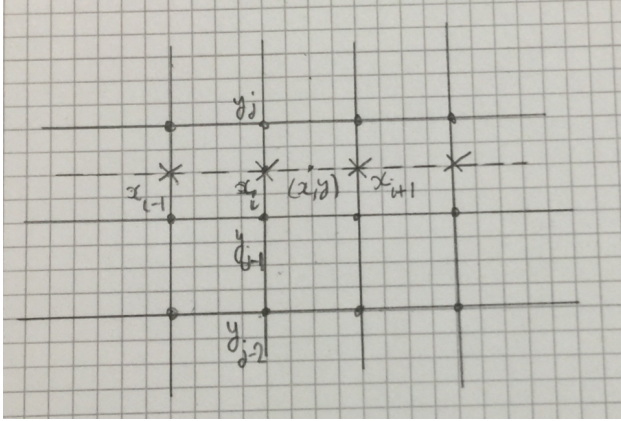 y_j
x_{i-1} x_i (x,y) x_{i+1}
y_{j-1}
y_{j-2}